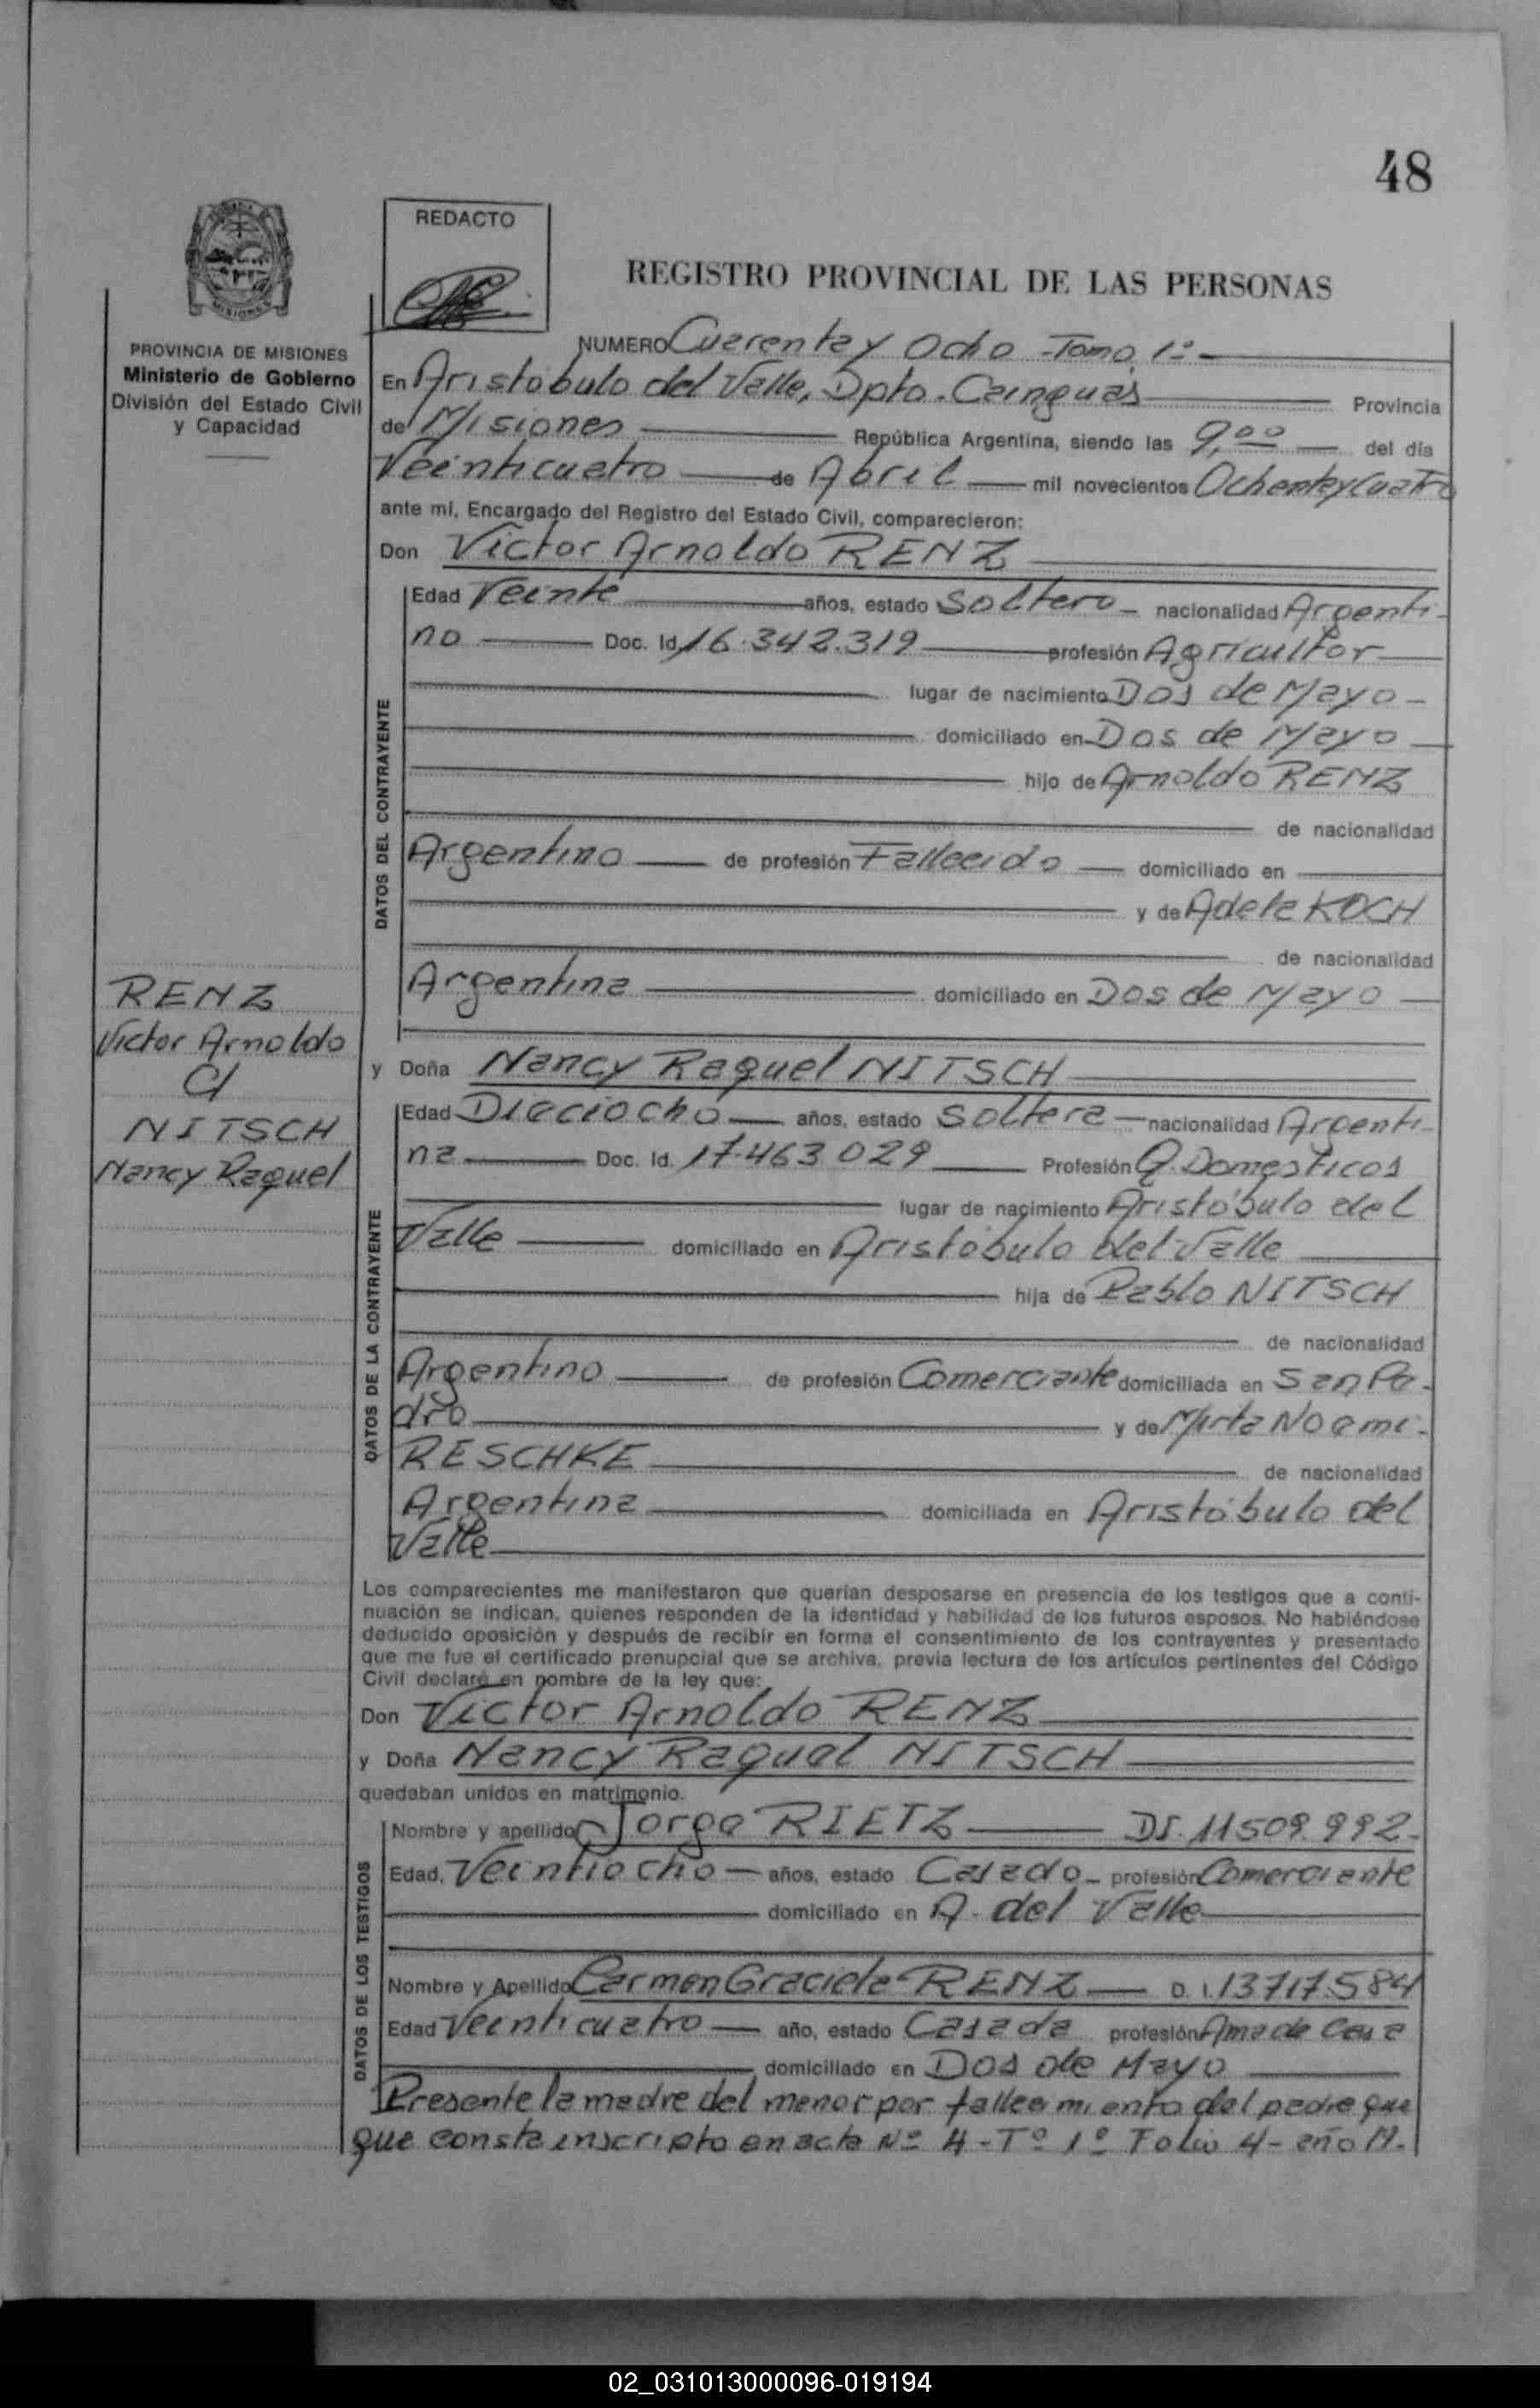 48
REDACTO
REGISTRO PROVINCIAL DE LAS PERSONAS
MISIONES
PROVINCIA DE MISIONES
Ministerio de Gobierno
División del Estado Civil
y Capacidad
NUMERO Cuarenta y Ocho - Tomo 1º -
En Aristóbulo del Valle, Dpto. Cainguás Provincia
de Misiones República Argentina, siendo las 9,00 del día
Veinticuatro de Abril mil novecientos Ochenta y Cuatro
ante mí, Encargado del Registro del Estado Civil, comparecieron:
Don Victor Arnoldo RENZ
DATOS DEL CONTRAYENTE
Edad Veinte años, estado Soltero - nacionalidad Argenti-
no Doc. Id. 16.342.319 profesión Agricultor
lugar de nacimiento Dos de Mayo -
domiciliado en Dos de Mayo
hijo de Arnoldo RENZ
de nacionalidad
Argentino de profesión Fallecido domiciliado en
y de Adela KOCH
de nacionalidad
Argentina domiciliado en Dos de Mayo
RENZ
Victor Arnoldo
c/
NITSCH
Nancy Raquel
y Doña Nancy Raquel NITSCH
DATOS DE LA CONTRAYENTE
Edad Dieciocho años, estado Soltera nacionalidad Argenti-
na Doc. Id. 17.463.029 Profesión Q. Domésticos
lugar de nacimiento Aristóbulo del
Valle domiciliado en Aristóbulo del Valle
hija de Pablo NITSCH
de nacionalidad
Argentino de profesión Comerciante domiciliada en San Pe-
dro y de Mirta Noemi
RESCHKE de nacionalidad
Argentina domiciliada en Aristóbulo del
Valle
Los comparecientes me manifestaron que querían desposarse en presencia de los testigos que a conti-
nuación se indican, quienes responden de la identidad y habilidad de los futuros esposos. No habiéndose
deducido oposición y después de recibir en forma el consentimiento de los contrayentes y presentado
que me fue el certificado prenupcial que se archiva, previa lectura de los artículos pertinentes del Código
Civil declaré en nombre de la ley que:
Don Victor Arnoldo RENZ
y Doña Nancy Raquel NITSCH
quedaban unidos en matrimonio.
DATOS DE LOS TESTIGOS
Nombre y apellido Jorge RIETZ DI. 11509.992.
Edad, Veintiocho años, estado Casado - profesión Comerciante
domiciliado en A. del Valle
Nombre y Apellido Carmen Graciela RENZ D. I. 13717.584
Edad Veinticuatro año, estado Casada profesión Ama de Casa
domiciliado en Dos de Mayo
Presente la madre del menor por fallecimiento del padre que
que consta inscripto en acta Nº 4 - Tº 1º Folio 4 - año
02_031013000096-019194